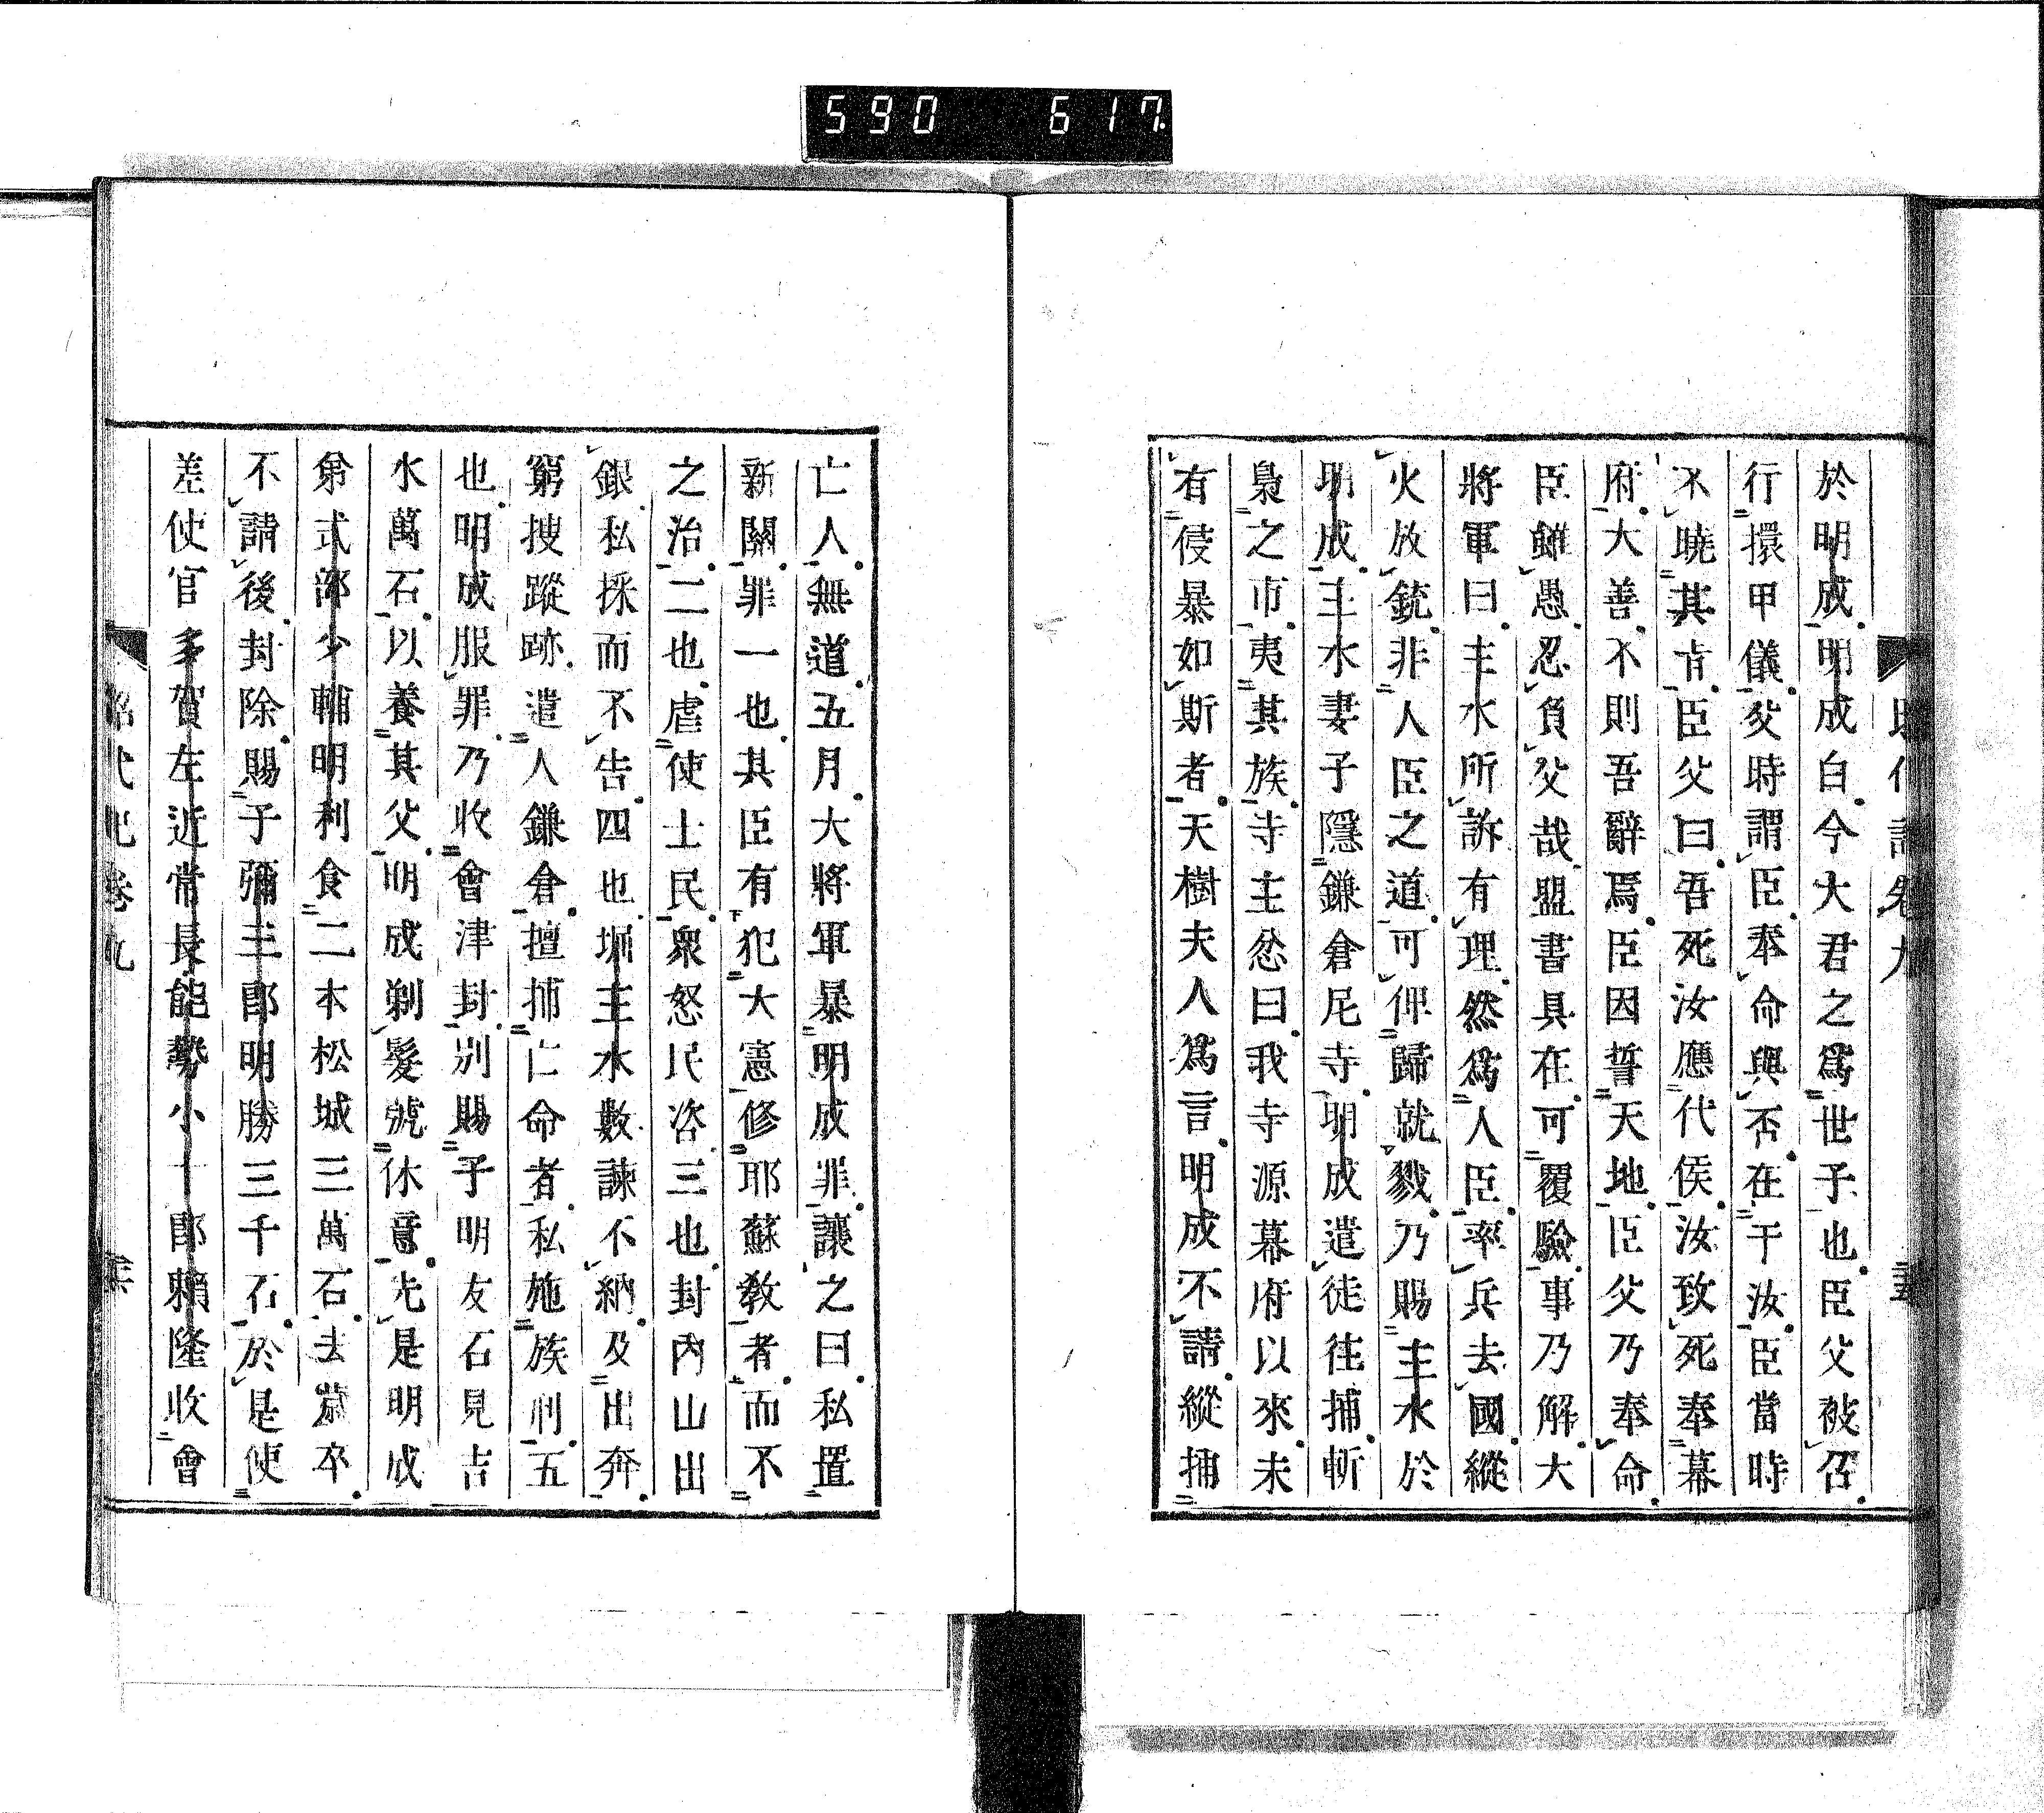 590 617
昭代記卷九
於明成明成白今大君之爲世子也臣父被召
行擐甲儀父時謂臣奉命與否在于汝臣當時
不曉其旨臣父曰吾死汝應代侯汝致死奉幕
府大善不則吾辭焉臣因誓天地臣父乃奉命
臣雖愚忍負父哉盟書具在可覆驗事乃解大
將軍曰主水所訴有理然爲人臣率兵去國縱
火放銃非人臣之道可俾歸就戮乃賜主水於
明成主水妻子隱鎌倉尼寺明成遣徒往捕斬
梟之市夷其族寺主忿曰我寺源幕府以來未
有侵暴如斯者天樹夫人爲言明成不請縱捕
亡人無道五月大將軍暴明成罪讓之曰私置
新關罪一也其臣有犯大憲修耶蘇敎者而不
之治二也虐使士民衆怒民咨三也封內山出
銀私採而不告四也堀主水數諫不納及出奔
窮搜蹤跡遣人鎌倉擅捕亡命者私施族刑五
也明成服罪乃收會津封別賜子明友石見吉
水萬石以養其父明成剃髮號休意先是明成
弟式部少輔明利食二本松城三萬石去歲卒
不請後封除賜子彌三郎明勝三千石於是使
差使官多賀左近常長能勢小十郎賴隆收會
昭代記卷九